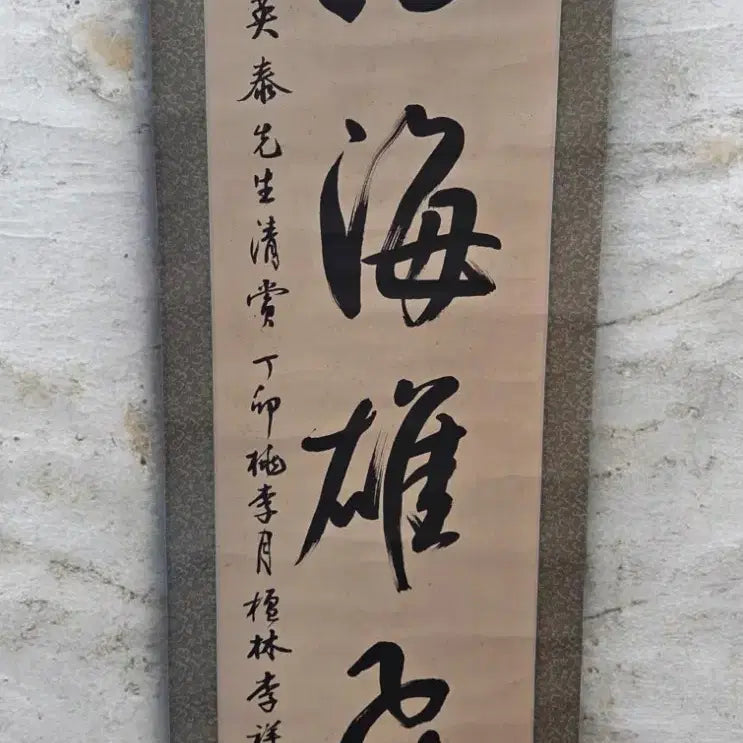 海雄
英泰先生清賞丁卯桃李月檀林李詳